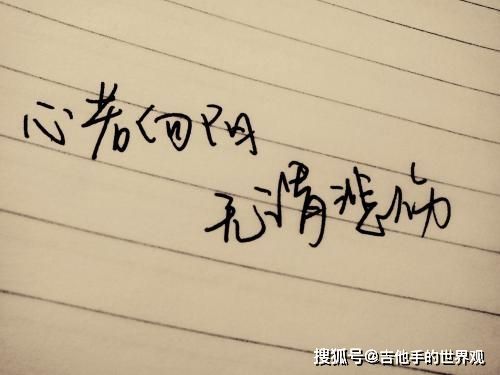 心若向阳
无谓悲伤
搜狐号@吉他手的世界观